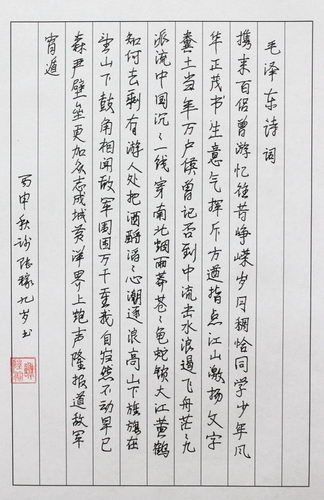 毛泽东诗词
携来百侣曾游忆往昔峥嵘岁月稠恰同学少年风
华正茂书生意气挥斥方遒指点江山激扬文字
粪土当年万户侯曾记否到中流击水浪遏飞舟茫〻九
派流中国沉〻一线穿南北烟雨莽苍〻龟蛇锁大江黄鹤
知何去剩有游人处把酒酹滔〻心潮逐浪高山下旌旗在
望山下鼓角相闻敌军围困万千重我自寂然不动早已
森严壁垒更加众志成城黄洋界上炮声隆报道敌军
宵遁
丙申秋 张稼九岁书